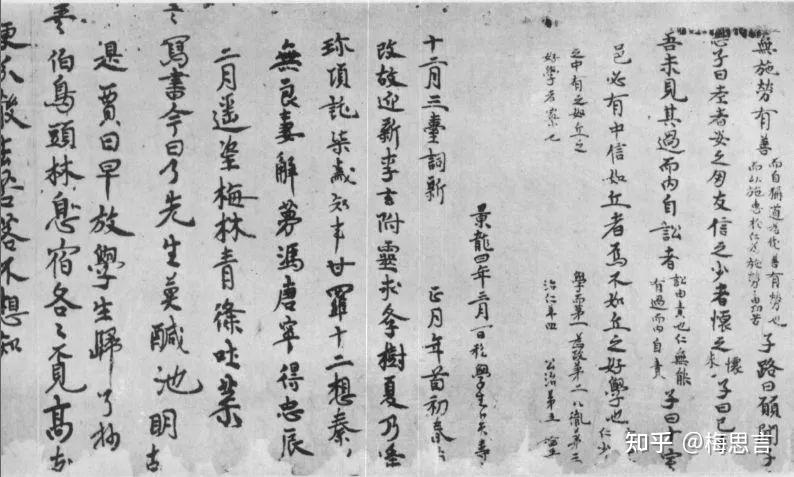 無施勞有善 而自稱道為伐善有勞也 子路曰願聞子
志子曰老者安之朋友信之少者懷之 懷來 子曰已
吾未見其過而內自訟者 訟由責也仁無能有過而內自責 子曰十室
邑必有中信如丘者焉不如丘之好學也
之中有之如丘之
好學者寡也
學而第一 為政第二 八 第三
治仁第四 公冶第五
景龍四年三月一日私學生卜天壽
十二月三臺詞新 正月年首初春
改故迎新李玄附靈求學樹夏乃逢
珍項託柒歲知事甘羅十二想秦
無良妻解夢馮唐寧得忠辰
二月遥望梅林青條吐葉
寫書今日了先生莫鹹池明古
是賈日早放學生歸了抄
伯鳥頭林息宿各各覓高支
更分散去 不想知
知乎 @梅思言